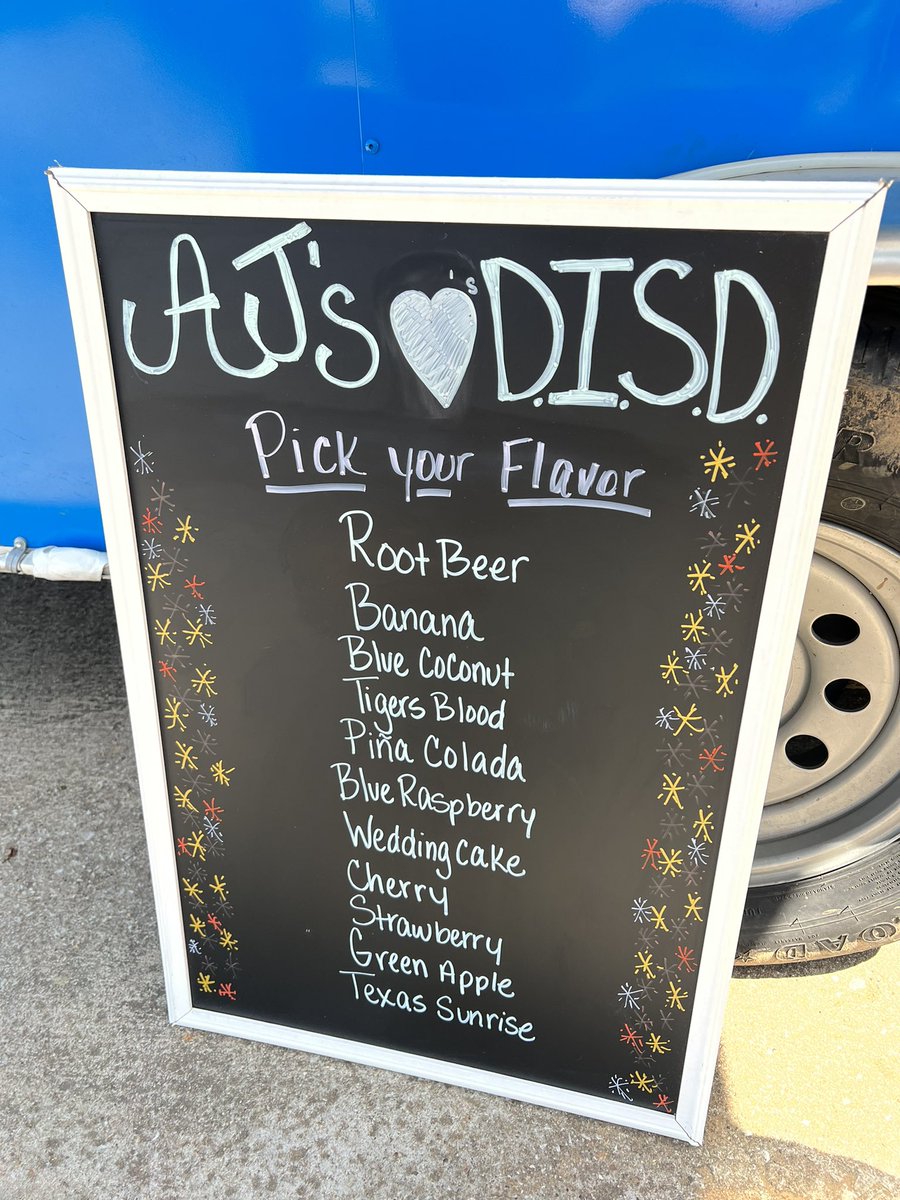 AJ's ♥'s D.I.S.D.
Pick your Flavor
Root Beer
Banana
Blue Coconut
Tigers Blood
Piña Colada
Blue Raspberry
Wedding Cake
Cherry
Strawberry
Green Apple
Texas Sunrise